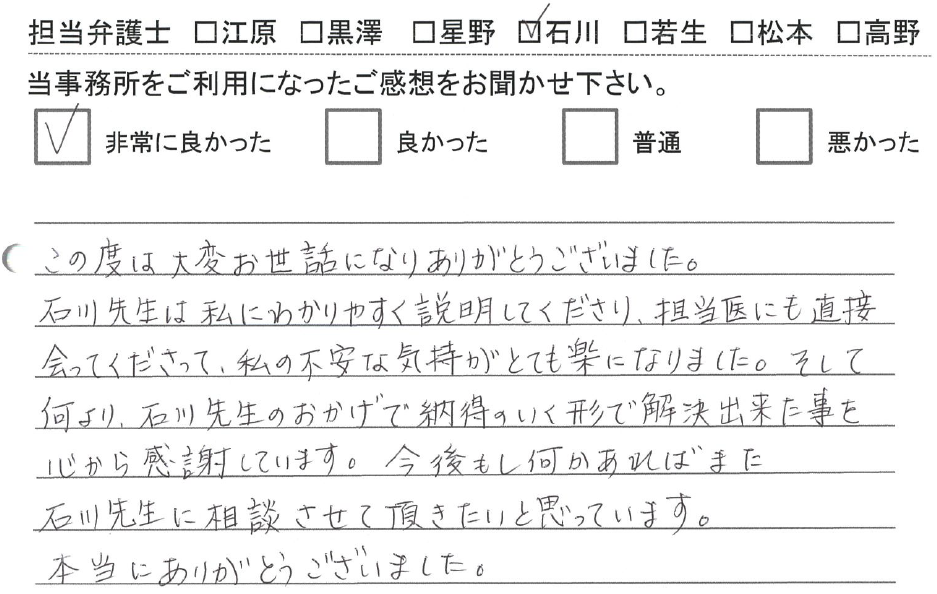 担当弁護士 □江原 □黒澤 □星野 ☑石川 □若生 □松本 □高野
当事務所をご利用になったご感想をお聞かせ下さい。
☑ 非常に良かった □ 良かった □ 普通 □ 悪かった
この度は大変お世話になりありがとうございました。
石川先生は私にわかりやすく説明してくださり、担当医にも直接
会ってくださって、私の不安な気持がとても楽になりました。そして
何より、石川先生のおかげで納得のいく形で解決出来た事を
心から感謝しています。今後もし何かあればまた
石川先生に相談させて頂きたいと思っています。
本当にありがとうございました。